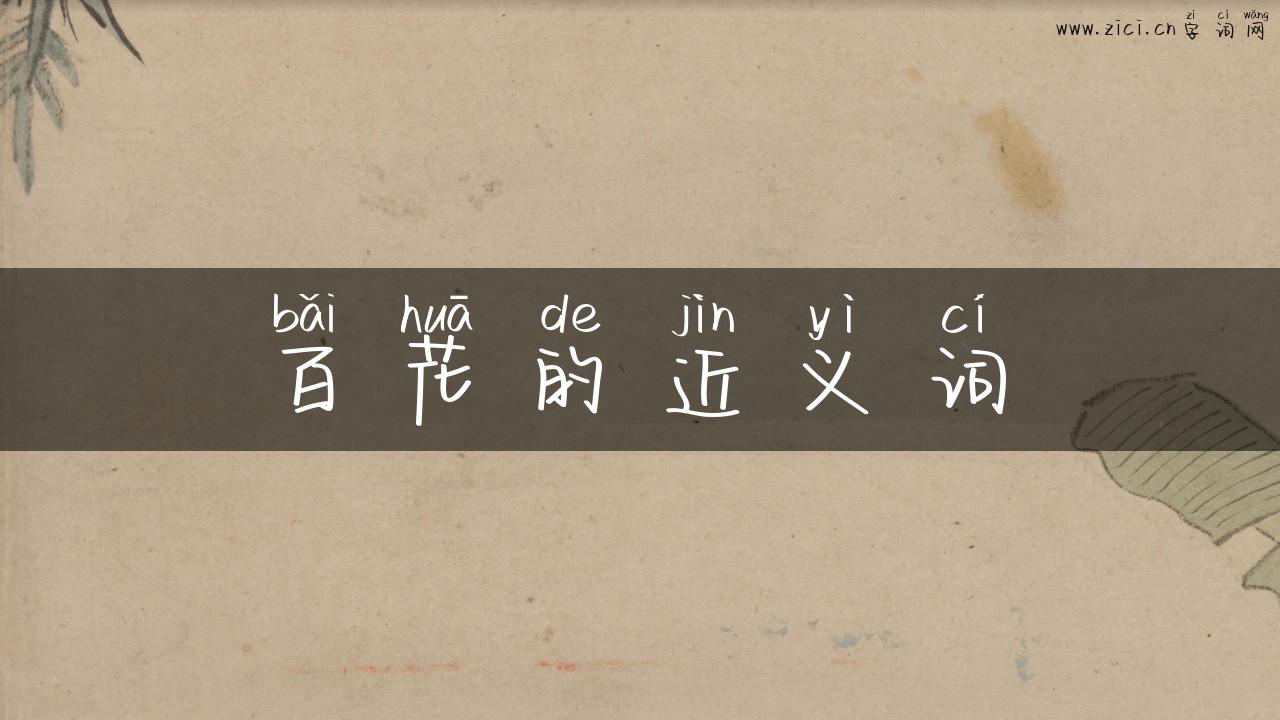 zì cí wǎng
www.zici.cn 字词网
bǎi huā de jìn yì cí
百花的近义词